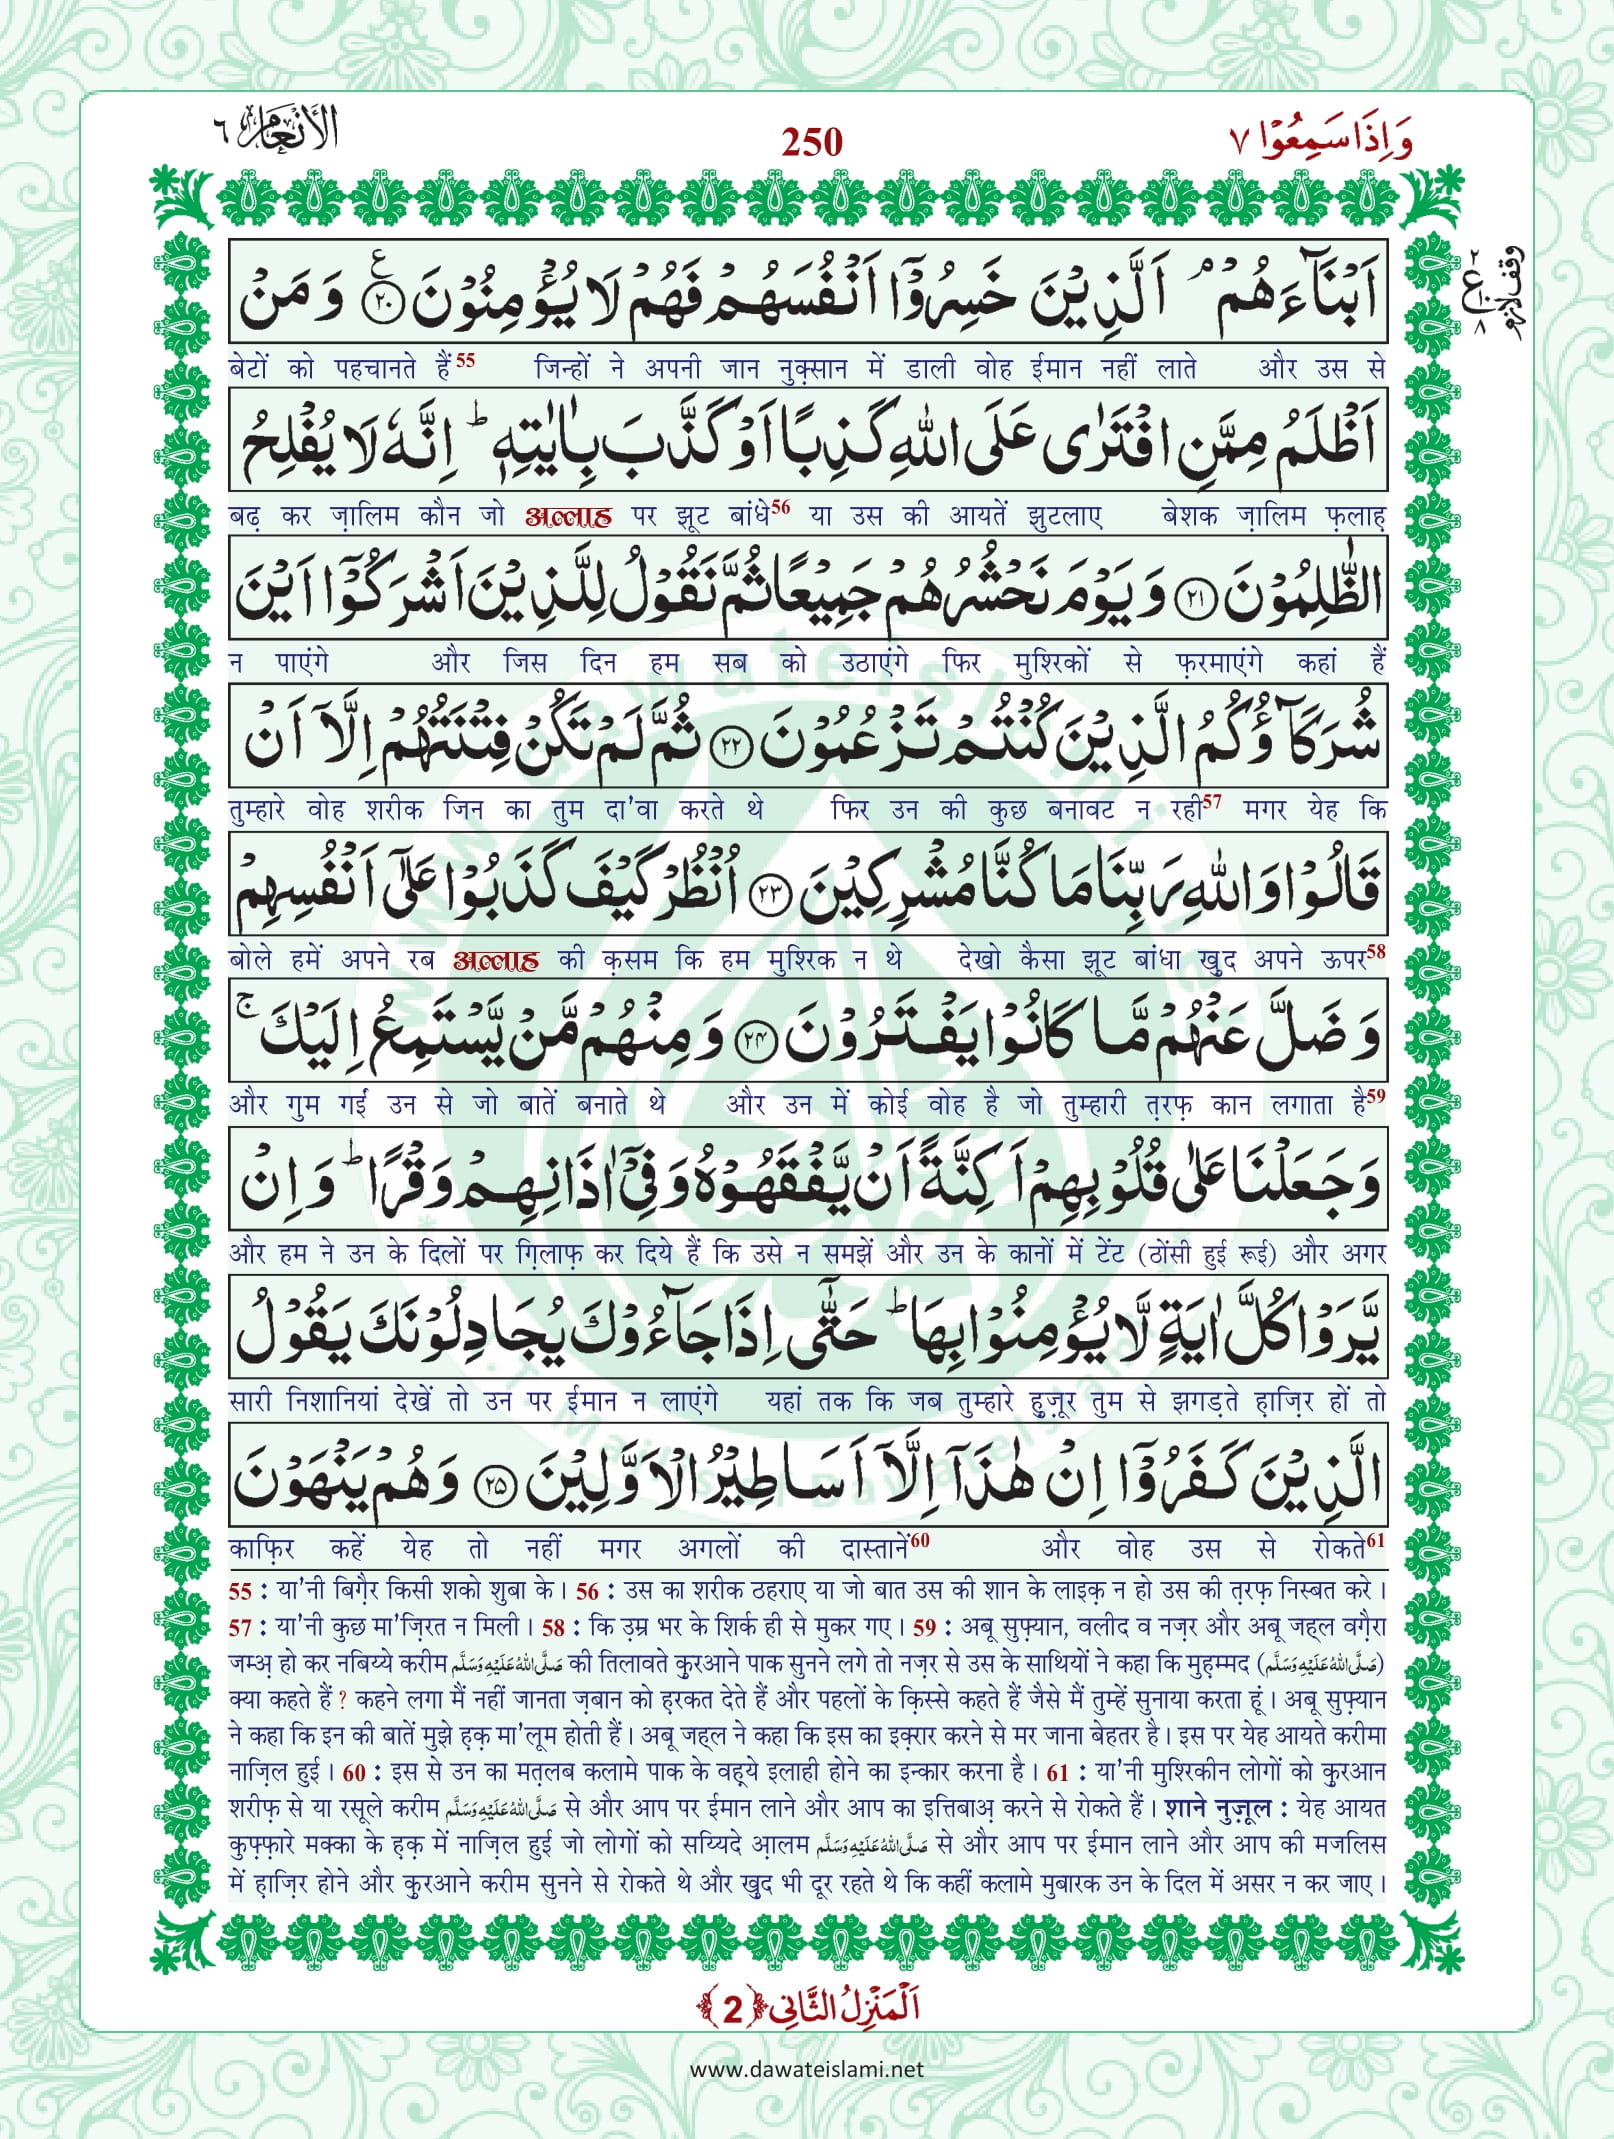 وَاِذَا سَمِعُوْا ٧
250
الْأَنْعَام ٦
اَبْنَآءَهُمْ ۘ اَلَّذِیْنَ خَسِرُوْۤا اَنْفُسَهُمْ فَهُمْ لَا یُؤْمِنُوْنَ ﴿٢٠﴾ ع وَ مَنْ
وقف لازم
٢ ع ١٠ ٨
बेटों को पहचानते हैं55 जिन्हों ने अपनी जान नुक़्सान में डाली वोह ईमान नहीं लाते और उस से
اَظْلَمُ مِمَّنِ افْتَرٰى عَلَى اللّٰهِ كَذِبًا اَوْ كَذَّبَ بِاٰیٰتِهٖ ؕ اِنَّهٗ لَا یُفْلِحُ
बढ़ कर ज़ालिम कौन जो अल्लाह पर झूट बांधे56 या उस की आयतें झुटलाए बेशक ज़ालिम फ़लाह़
الظّٰلِمُوْنَ ﴿٢١﴾ وَ یَوْمَ نَحْشُرُهُمْ جَمِیْعًا ثُمَّ نَقُوْلُ لِلَّذِیْنَ اَشْرَكُوْۤا اَیْنَ
न पाएंगे और जिस दिन हम सब को उठाएंगे फिर मुश्रिकों से फ़रमाएंगे कहां हैं
شُرَكَآؤُكُمُ الَّذِیْنَ كُنْتُمْ تَزْعُمُوْنَ ﴿٢٢﴾ ثُمَّ لَمْ تَكُنْ فِتْنَتُهُمْ اِلَّاۤ اَنْ
तुम्हारे वोह शरीक जिन का तुम दा'वा करते थे फिर उन की कुछ बनावट न रही57 मगर येह कि
قَالُوْا وَ اللّٰهِ رَبِّنَا مَا كُنَّا مُشْرِكِیْنَ ﴿٢٣﴾ اُنْظُرْ كَیْفَ كَذَبُوْا عَلٰۤى اَنْفُسِهِمْ
बोले हमें अपने रब अल्लाह की क़सम कि हम मुश्रिक न थे देखो कैसा झूट बांधा ख़ुद अपने ऊपर58
وَ ضَلَّ عَنْهُمْ مَّا كَانُوْا یَفْتَرُوْنَ ﴿٢٤﴾ وَ مِنْهُمْ مَّنْ یَّسْتَمِعُ اِلَیْكَ ۚ
और गुम गईं उन से जो बातें बनाते थे और उन में कोई वोह है जो तुम्हारी त़रफ़ कान लगाता है59
وَ جَعَلْنَا عَلٰى قُلُوْبِهِمْ اَكِنَّةً اَنْ یَّفْقَهُوْهُ وَ فِیْۤ اٰذَانِهِمْ وَقْرًا ؕ وَ اِنْ
और हम ने उन के दिलों पर ग़िलाफ़ कर दिये हैं कि उसे न समझें और उन के कानों में टेंट (ठोंसी हुई रूई) और अगर
یَّرَوْا كُلَّ اٰیَةٍ لَّا یُؤْمِنُوْا بِهَا ؕ حَتّٰۤى اِذَا جَآءُوْكَ یُجَادِلُوْنَكَ یَقُوْلُ
सारी निशानियां देखें तो उन पर ईमान न लाएंगे यहां तक कि जब तुम्हारे हुज़ूर तुम से झगड़ते ह़ाज़िर हों तो
الَّذِیْنَ كَفَرُوْۤا اِنْ هٰذَاۤ اِلَّاۤ اَسَاطِیْرُ الْاَوَّلِیْنَ ﴿٢٥﴾ وَ هُمْ یَنْهَوْنَ
काफ़िर कहें येह तो नहीं मगर अगलों की दास्तानें60 और वोह उस से रोकते61
55 : या'नी बिग़ैर किसी शको शुबा के। 56 : उस का शरीक ठहराए या जो बात उस की शान के लाइक़ न हो उस की त़रफ़ निस्बत करे।
57 : या'नी कुछ मा'ज़िरत न मिली। 58 : कि उ़म्र भर के शिर्क ही से मुकर गए। 59 : अबू सुफ़्यान, वलीद व नज़र और अबू जह्ल वग़ैरा
जम्अ़ हो कर नबिय्ये करीम صَلَّى اللهُ عَلَيْهِ وَسَلَّم की तिलावते क़ुरआने पाक सुनने लगे तो नज़र से उस के साथियों ने कहा कि मुह़म्मद (صَلَّى اللهُ عَلَيْهِ وَسَلَّم)
क्या कहते हैं ? कहने लगा मैं नहीं जानता ज़बान को ह़रकत देते हैं और पहलों के क़िस्से कहते हैं जैसे मैं तुम्हें सुनाया करता हूं। अबू सुफ़्यान
ने कहा कि इन की बातें मुझे ह़क़ मा'लूम होती हैं। अबू जह्ल ने कहा कि इस का इक़्रार करने से मर जाना बेहतर है। इस पर येह आयते करीमा
नाज़िल हुई। 60 : इस से उन का मत़लब कलामे पाक के वह़्ये इलाही होने का इन्कार करना है। 61 : या'नी मुश्रिकीन लोगों को क़ुरआन
शरीफ़ से या रसूले करीम صَلَّى اللهُ عَلَيْهِ وَسَلَّم से और आप पर ईमान लाने और आप का इत्तिबाअ़ करने से रोकते हैं। शाने नुज़ूल : येह आयत
कुफ़्फ़ारे मक्का के ह़क़ में नाज़िल हुई जो लोगों को सय्यिदे आ़लम صَلَّى اللهُ عَلَيْهِ وَسَلَّم से और आप पर ईमान लाने और आप की मजलिस
में ह़ाज़िर होने और क़ुरआने करीम सुनने से रोकते थे और ख़ुद भी दूर रहते थे कि कहीं कलामे मुबारक उन के दिल में असर न कर जाए।
اَلْمَنْزِلُ الثَّانِی ﴿2﴾
www.dawateislami.net